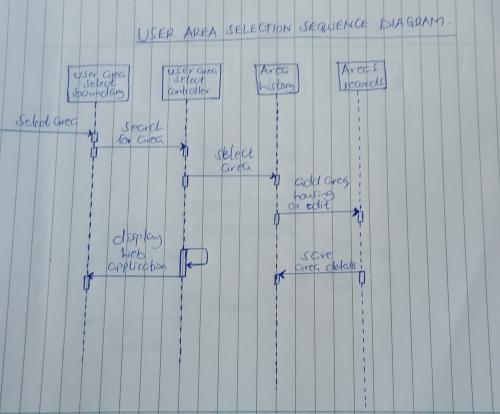 USER AREA SELECTION SEQUENCE DIAGRAM.
user area
select
boundary
user area
select
controller
Area
history
Areas
records
Select area
search
for area
select
area
add area,
housing
or edit
display
web
application
save
area details